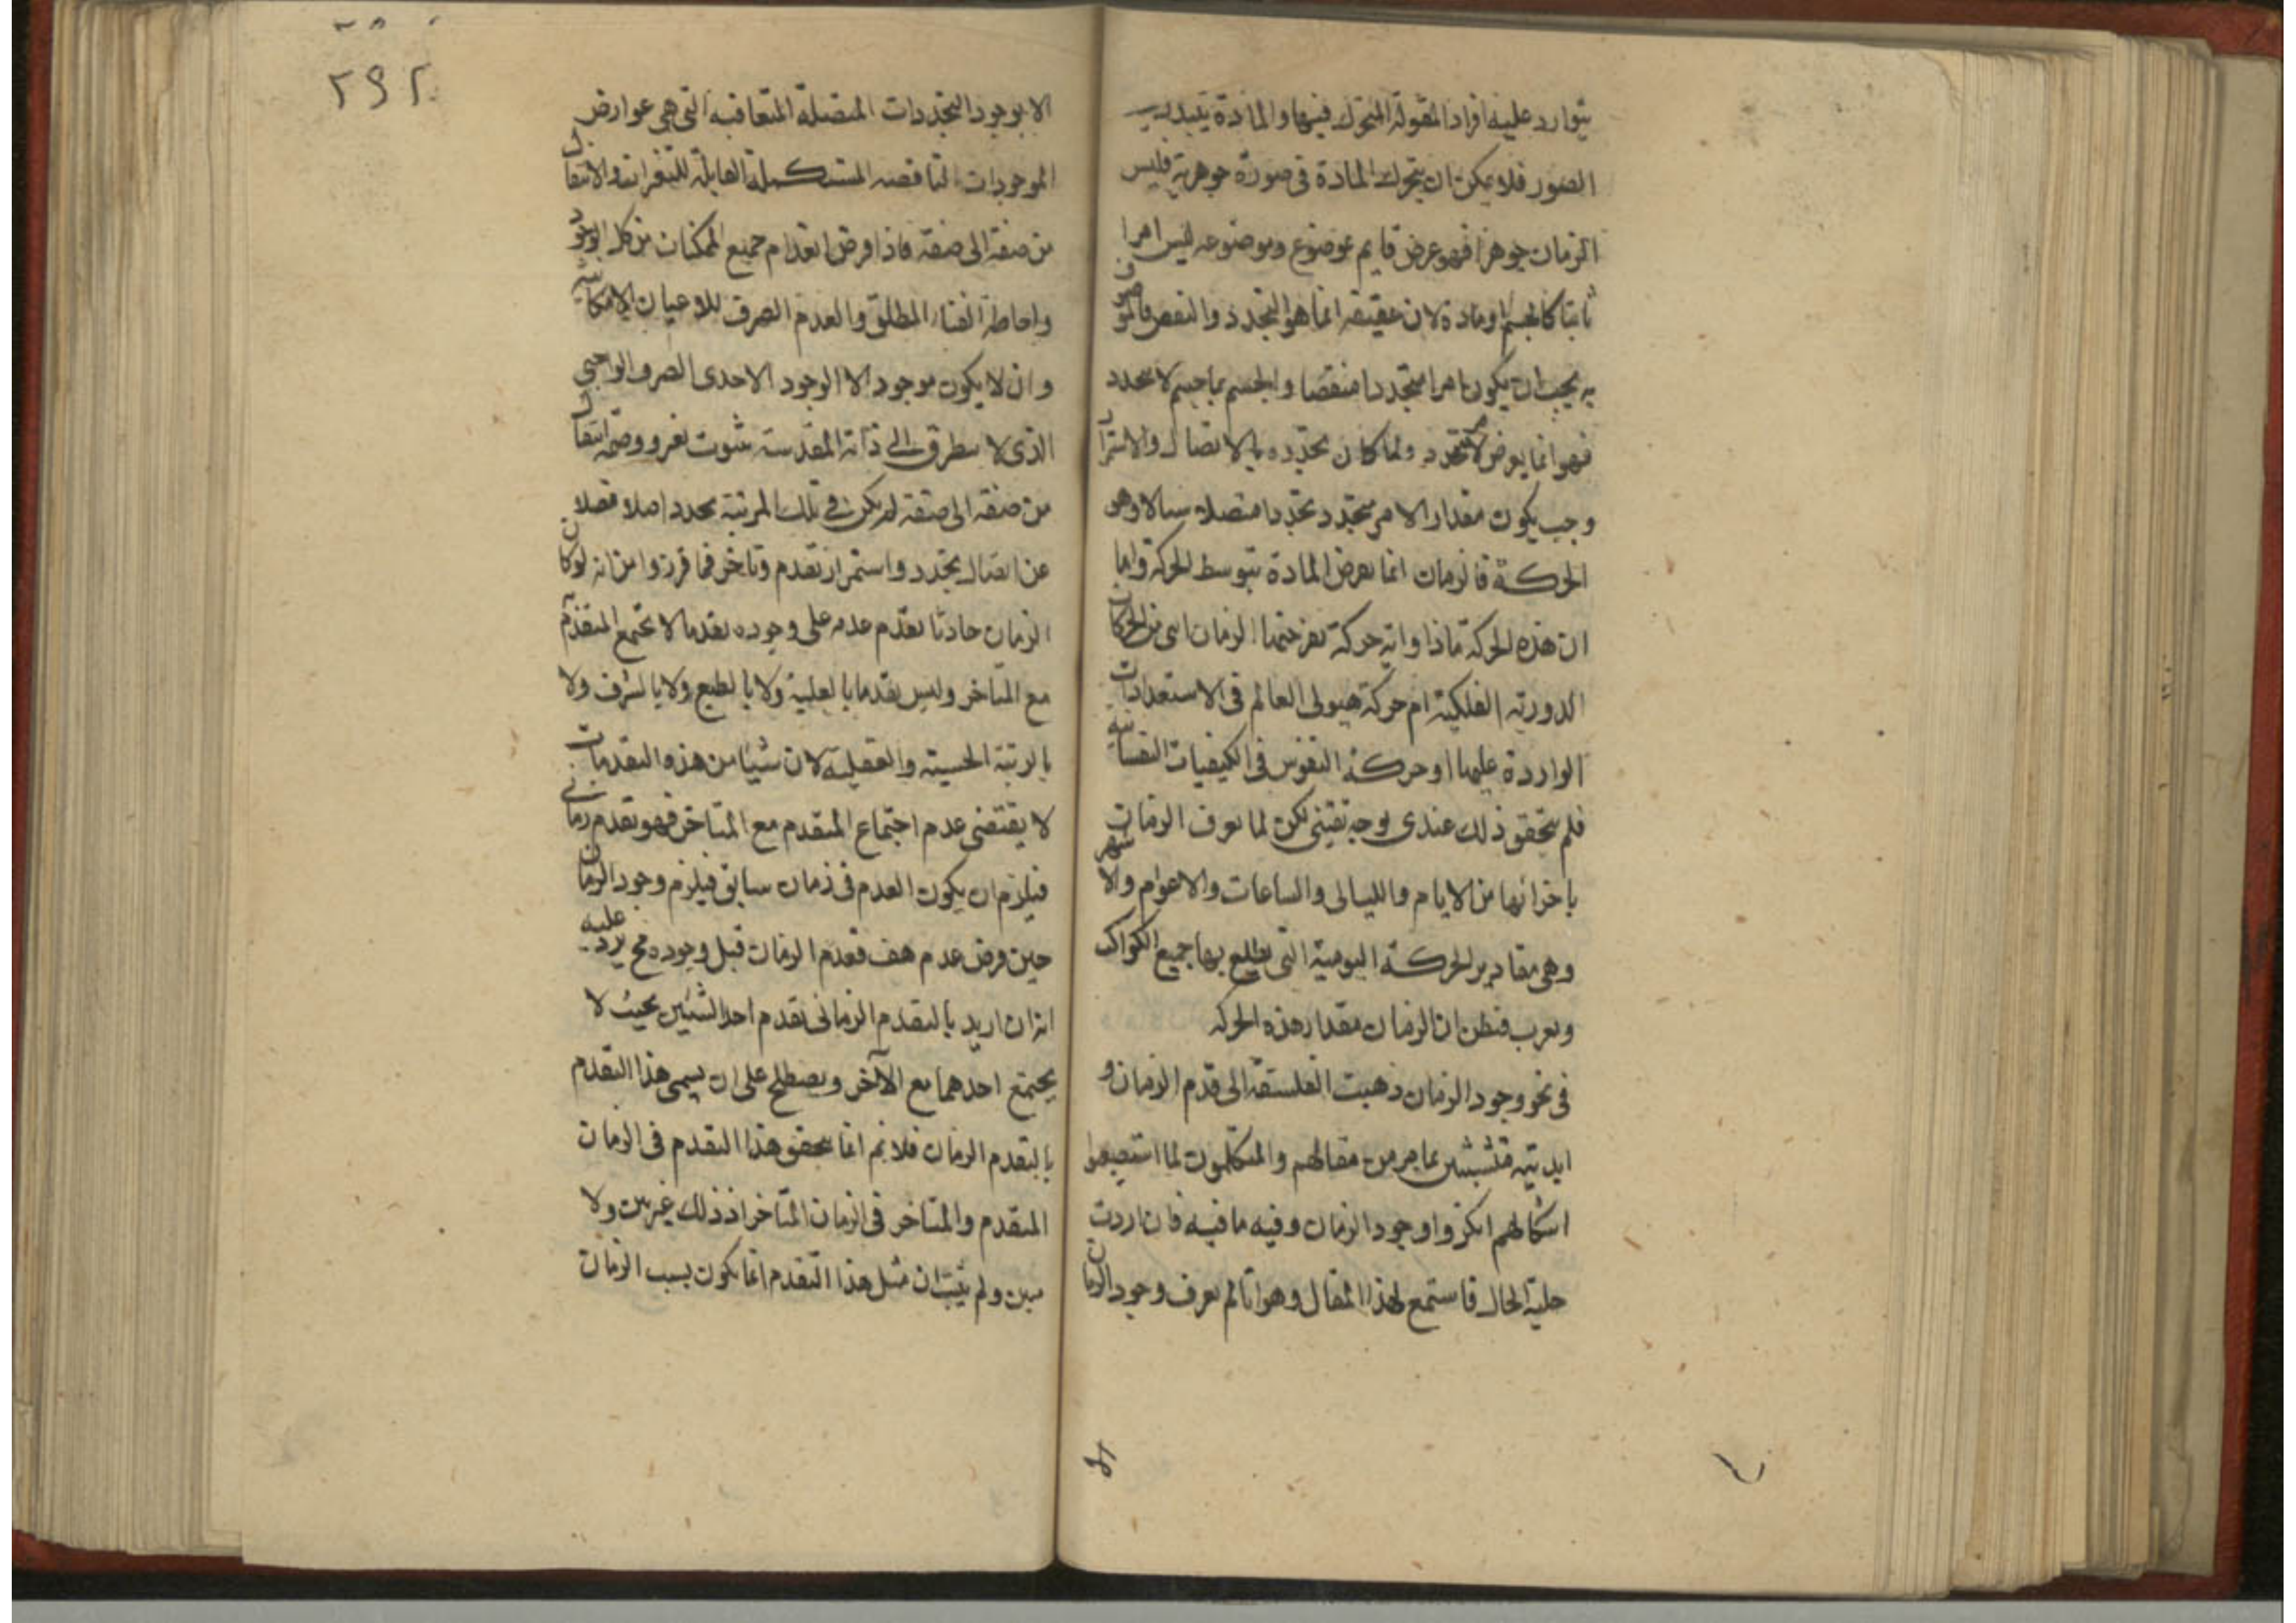 يتوارد عليه افراد المقولة المتحرك فيها والمادة يتبدل
الصور فلا يمكن ان يتحرك المادة في صورة جوهرية فليس
الزمان جوهرا فهو عرض قايم بموضوع وموضوعه ليس امرا
ثابتا كالجسم او مادة لان حقيقته انما هو التجدد والتقض فالموصوف
به يجب ان يكون امرا متجددا منقضيا والجسم بما جسم لا يتجدد
فهو انما يعرض لمتجدد ولما كان تجدده بالاتصال والاستمرار
وجب يكون مقدار الامر متجدد تجددا متصلا سيالا وهو
الحركة فالزمان انما يعرض المادة بتوسط الحركة واما
ان هذه الحركة ماذا واية حركة يعرضها الزمان اهي من الحركات
الدورية الفلكية ام حركة هيولى العالم في الاستعدادات
الواردة عليها او حركة النفوس في الكيفيات النفسانية
فلم يتحقق ذلك عندى بوجه يقيني لكن لما نعرف الزمان
باجزائها من الايام والليالى والساعات والاعوام والاشهر
وهي مقادير الحركة اليومية التى يطلع بها جميع الكواكب
وتغرب فنظن ان الزمان مقدار هذه الحركة
في نحو وجود الزمان ذهبت الفلسفة الى قدم الزمان و
ابديته متشبثين بما مر من مقالهم والمتكلمون لما استصعبوا
اشكالهم انكروا وجود الزمان وفيه ما فيه فان اردت
جلية الحال فاستمع لهذا المقال وهو انا لم نعرف وجود الزمان
٢٩٢
الا بوجود التجددات المتصلة المتعاقبة التى هي عوارض
الموجودات الناقصه المستكملة القابلة للتغيرات والانتقال
من صفة الى صفة فاذا فرض انعدام جميع الممكنات من كل الوجود
واحاطة الفناء المطلق والعدم الصرف للاعيان الامكانية
وان لا يكون موجود الا الوجود الاحدى الصرف الواجبي
الذى لا يتطرق الى ذاته المقدسة ثبوت تغير وصحة انتقال
من صفة الى صفة لم يكن في تلك المرتبة تجدد اصلا فضلا
عن اتصال تجدد واستمرار تقدم وتاخر فما قرروا من انه لو كان
الزمان حادثا تقدم عدمه على وجوده تقدما لا يجتمع المتقدم
مع المتاخر وليس تقدما بالعلية ولا بالطبع ولا بالشرف ولا
بالرتبة الحسية والعقلية لان شيئا من هذه التقدمات
لا يقتضى عدم اجتماع المتقدم مع المتاخر فهو تقدم زمانى
فيلزم ان يكون العدم في زمان سابق فيلزم وجود الزمان
حين فرض عدم هف فعدم الزمان قبل وجوده مح يرد عليه
انه ان اريد بالتقدم الزمانى تقدم احد الشيئين بحيث لا
يجتمع احدهما مع الآخر ويصطلح على ان يسمى هذا التقدم
بالتقدم الزمان فلا نم انما يتحقق هذا التقدم في الزمان
المتقدم والمتاخر في الزمان المتاخر اذ ذلك غير بين ولا
مبين ولم يثبت ان مثل هذا التقدم انما يكون بسبب الزمان